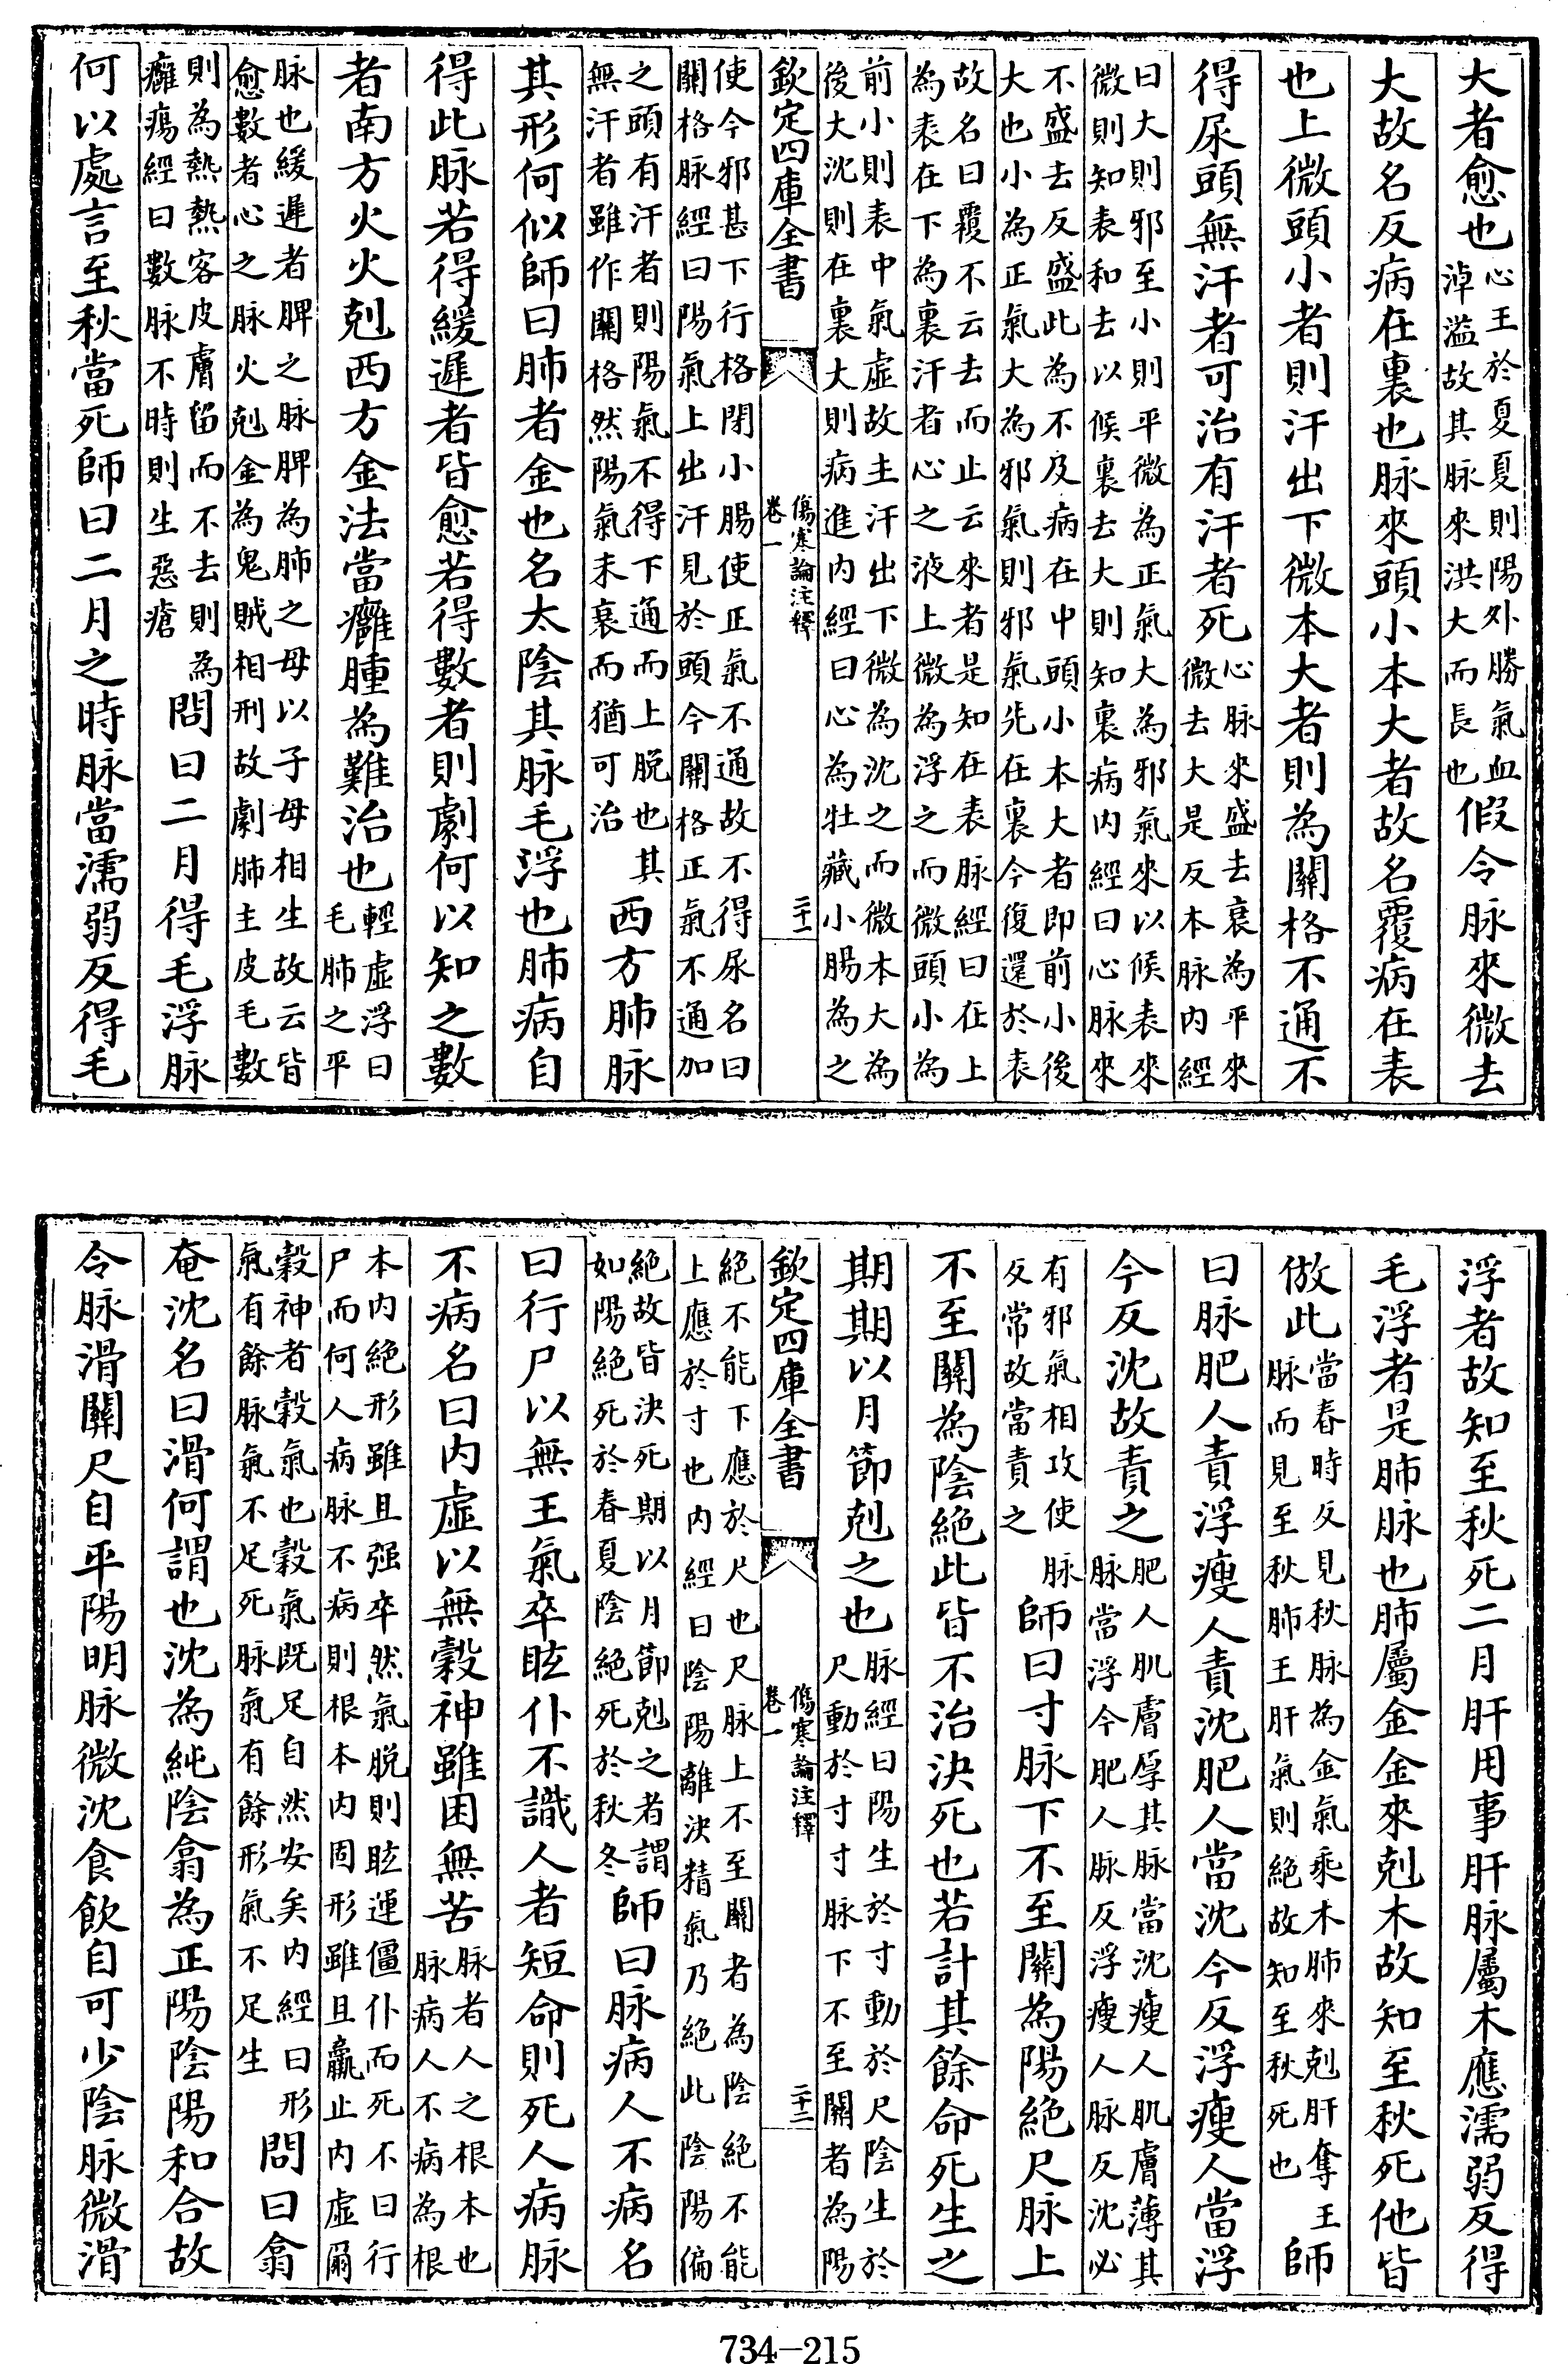 大者愈也心王於夏夏則陽外勝氣血淖溢故其脉來洪大而長也假令脉來微去
大故名反病在裏也脉來頭小本大者故名覆病在表
也上微頭小者則汗出下微本大者則為關格不通不
得尿頭無汗者可治有汗者死心脉來盛去衰為平來微去大是反本脉內經
曰大則邪至小則平微為正氣大為邪氣來以候表來微則知表和去以候裏去大則知裏病內經曰心脉來
不盛去反盛此為不及病在中頭小本大者即前小後大也小為正氣大為邪氣則邪氣先在裏今復還於表
故名曰覆不云去而止云來者是知在表脉經曰在上為表在下為裏汗者心之液上微為浮之而微頭小為
前小則表中氣虛故主汗出下微為沈之而微本大為後大沈則在裏大則病進內經曰心為牡藏小腸為之
欽定四庫全書
傷寒論注釋
卷一
二十一
使今邪甚下行格閉小腸使正氣不通故不得尿名曰關格脉經曰陽氣上出汗見於頭今關格正氣不通加
之頭有汗者則陽氣不得下通而上脱也其無汗者雖作關格然陽氣未衰而猶可治西方肺脉
其形何似師曰肺者金也名太陰其脉毛浮也肺病自
得此脉若得緩遲者皆愈若得數者則劇何以知之數
者南方火火剋西方金法當癰腫為難治也輕虛浮曰毛肺之平
脉也緩遲者脾之脉脾為肺之母以子母相生故云皆愈數者心之脉火剋金為鬼賊相刑故劇肺主皮毛數
則為熱熱客皮膚留而不去則為癰瘍經曰數脉不時則生惡瘡問曰二月得毛浮脉
何以處言至秋當死師曰二月之時脉當濡弱反得毛
浮者故知至秋死二月肝用事肝脉屬木應濡弱反得
毛浮者是肺脉也肺屬金金來剋木故知至秋死他皆
倣此當春時反見秋脉為金氣乘木肺來剋肝奪王脉而見至秋肺王肝氣則絕故知至秋死也師
曰脉肥人責浮瘦人責沈肥人當沈今反浮瘦人當浮
今反沈故責之肥人肌膚厚其脉當沈瘦人肌膚薄其脉當浮今肥人脉反浮瘦人脉反沈必
有邪氣相攻使脉反常故當責之師曰寸脉下不至關為陽絕尺脉上
不至關為陰絕此皆不治決死也若計其餘命死生之
期期以月節剋之也脉經曰陽生於寸動於尺陰生於尺動於寸寸脉下不至關者為陽
欽定四庫全書
傷寒論注釋
卷一
二十二
絕不能下應於尺也尺脉上不至關者為陰絕不能上應於寸也內經曰陰陽離決精氣乃絕此陰陽偏
絕故皆決死期以月節剋之者謂如陽絕死於春夏陰絕死於秋冬師曰脉病人不病名
曰行尸以無王氣卒眩仆不識人者短命則死人病脉
不病名曰內虛以無穀神雖困無苦脉者人之根本也脉病人不病為根
本內絕形雖且强卒然氣脱則眩運僵仆而死不曰行尸而何人病脉不病則根本內固形雖且羸止內虛爾
穀神者穀氣也穀氣既足自然安矣內經曰形氣有餘脉氣不足死脉氣有餘形氣不足生問曰翕
奄沈名曰滑何謂也沈為純陰翕為正陽陰陽和合故
令脉滑關尺自平陽明脉微沈食飲自可少陰脉微滑
734-215